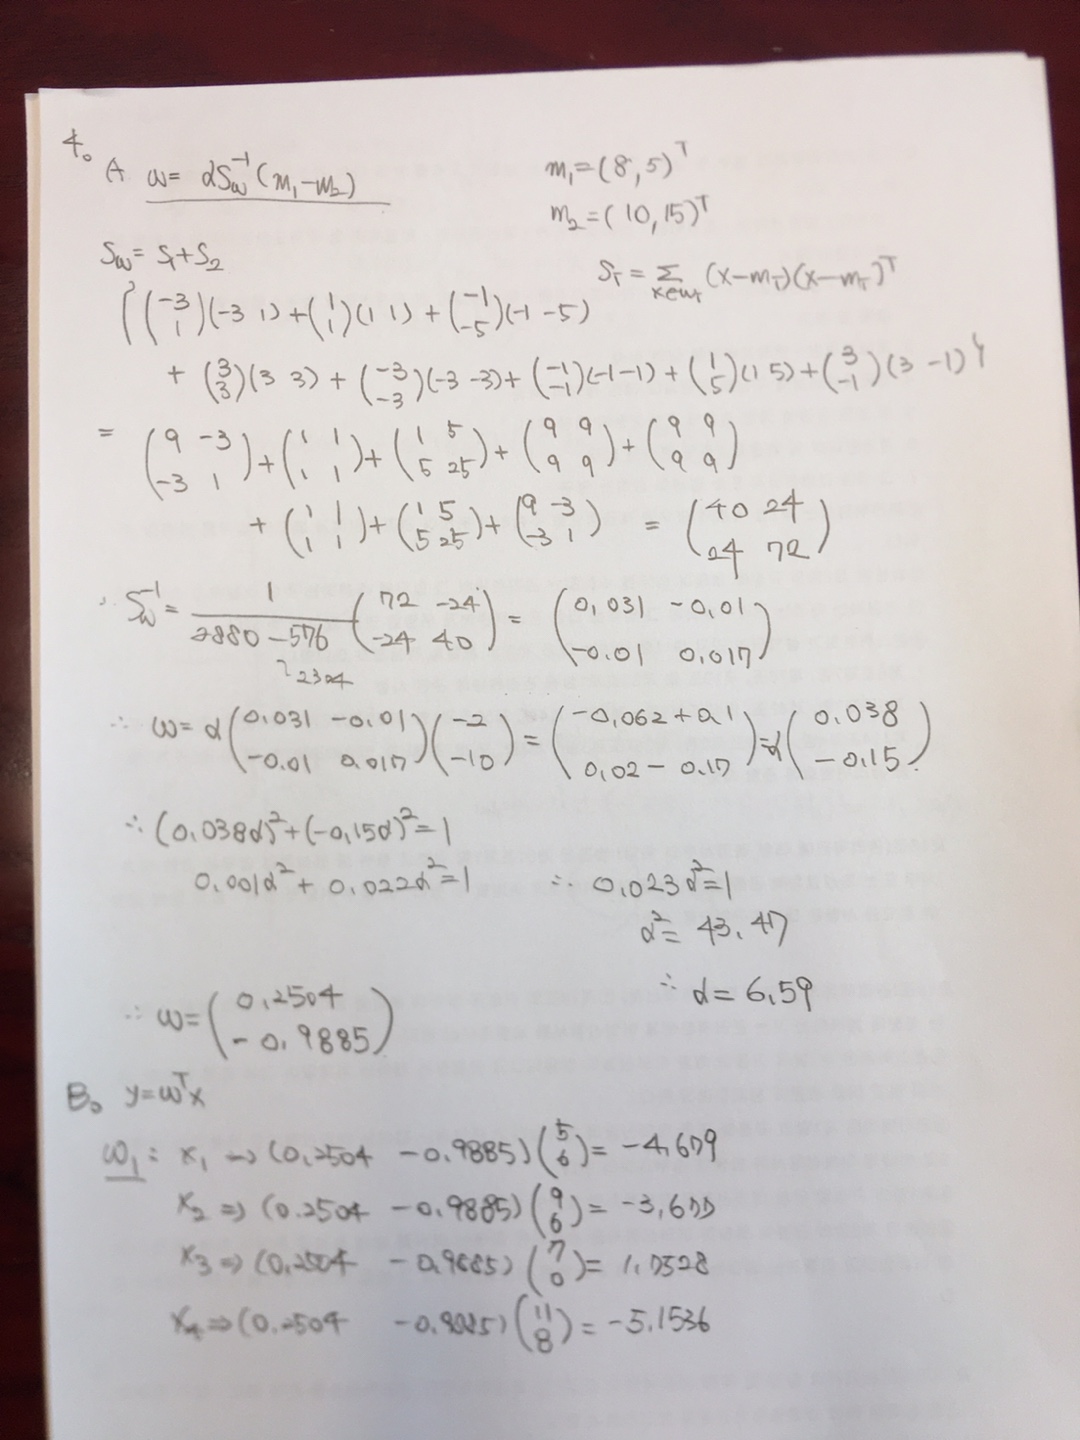 4.
A w = αSw⁻¹(m₁-m₂)
m₁=(8,5)ᵀ
m₂=(10,15)ᵀ
Sw = S₁+S₂
Sᵢ = Σ_{x∈wᵢ} (x-mᵢ)(x-mᵢ)ᵀ
{(-3 1)ᵀ(-3 1) + (1 1)ᵀ(1 1) + (-1 -5)ᵀ(-1 -5)
+ (3 3)ᵀ(3 3) + (-3 -3)ᵀ(-3 -3) + (-1 -1)ᵀ(-1 -1) + (1 5)ᵀ(1 5) + (3 -1)ᵀ(3 -1)}
= (9 -3; -3 1) + (1 1; 1 1) + (1 5; 5 25) + (9 9; 9 9) + (9 9; 9 9)
+ (1 1; 1 1) + (1 5; 5 25) + (9 -3; -3 1) = (40 24; 24 72)
∴ Sw⁻¹ = 1/(2880-576) (72 -24; -24 40) = (0.031 -0.01; -0.01 0.017)
2304
∴ w = α(0.031 -0.01; -0.01 0.017)(-2; -10) = (-0.062+0.1; 0.02-0.17) = α(0.038; -0.15)
∴ (0.038α)²+(-0.15α)²=1
0.001α²+0.022α²=1 ∴ 0.023α²=1
α²= 43.47
∴ α= 6.59
∴ w = (0.2504; -0.9885)
B. y=wᵀx
w₁ : x₁ => (0.2504 -0.9885)(5; 6) = -4.679
x₂ => (0.2504 -0.9885)(9; 6) = -3.677
x₃ => (0.2504 -0.9885)(7; 0) = 1.7528
x₄ => (0.2504 -0.9885)(11; 8) = -5.1536